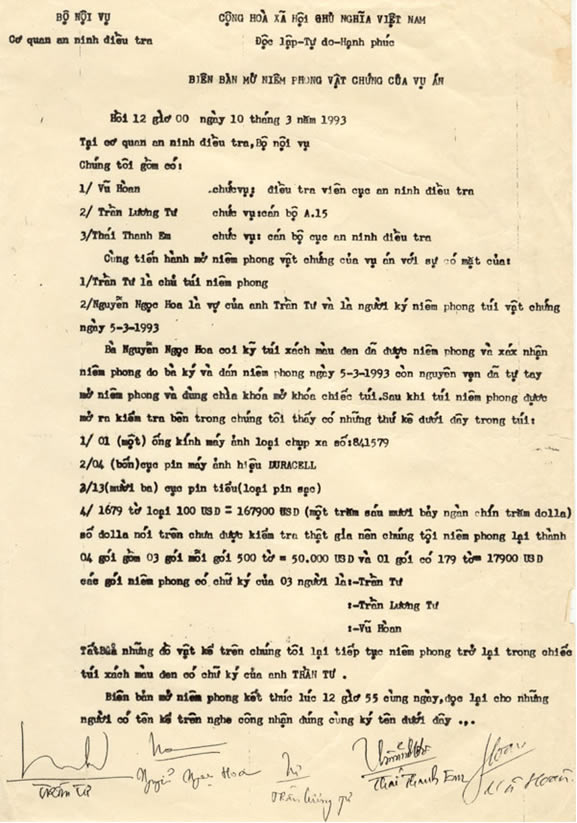 BỘ NỘI VỤ
Cơ quan an ninh điều tra
CỘNG HOÀ XÃ HỘI CHỦ NGHĨA VIỆT NAM
Độc lập-Tự do-Hạnh phúc
BIÊN BẢN MỞ NIÊM PHONG VẬT CHỨNG CỦA VỤ ÁN
Hồi 12 giờ 00 ngày 10 tháng 3 năm 1993
Tại cơ quan an ninh điều tra,Bộ nội vụ
Chúng tôi gồm có:
1/ Vũ Hoàn chức vụ: điều tra viên cục an ninh điều tra
2/ Trần Lương Tư chức vụ:cán bộ A.15
3/Thái Thanh Em chức vụ: cán bộ cục an ninh điều tra
Cùng tiến hành mở niêm phong vật chứng của vụ án với sự có mặt của:
1/Trần Tư là chủ túi niêm phong
2/Nguyễn Ngọc Hoa là vợ của anh Trần Tư và là người ký niêm phong túi vật chứng
ngày 5-3-1993
Bà Nguyễn Ngọc Hoa coi kỹ túi xách màu đen đã được niêm phong và xáx nhận
niêm phong do bà ký và dán niêm phong ngày 5-3-1993 còn nguyên vẹn đã tự tay
mở niêm phong và dùng chìa khóa mở khóa chiếc túi.Sau khi túi niêm phong được
mở ra kiểm tra bên trong chúng tôi thấy có những thứ kê dưới đây trong túi:
1/ 01 (một) ống kính máy ảnh loại chụp xa số:841579
2/04 (bốn)cục pin máy ảnh hiệu DURACELL
3/13(mười ba) cục pin tiểu(loại pin sạc)
4/ 1679 tờ loại 100 USD = 167900 USD (một trăm sáu mươi bảy ngàn chín trăm dolla)
số dolla nói trên chưa được kiểm tra thật gỉa nên chúng tội niêm phong lại thành
04 gói gồm 03 gói mỗi gói 500 tờ = 50.000 USD và 01 gói có 179 tờ= 17900 USD
các gói niêm phong có chữ ký của 03 người là:-Trần Tư
:-Trần Lương Tư
:-Vũ Hoàn
những đồ vật kể trên chúng tôi lại tiếp tục niêm phong trở lại trong chiếc
túi xách màu đen có chữ ký của anh TRẦN TƯ .
Biên bản mở niêm phong kết thúc lúc 12 giờ 55 cùng ngày,đọc lại cho những
người có tên kể trên nghe công nhận đúng cùng ký tên dưới đây .,.
Trần Tư
Nguyễn Ngọc Hoa
Trần Lương Tư
Thái Thanh Em
Vũ Hoàn